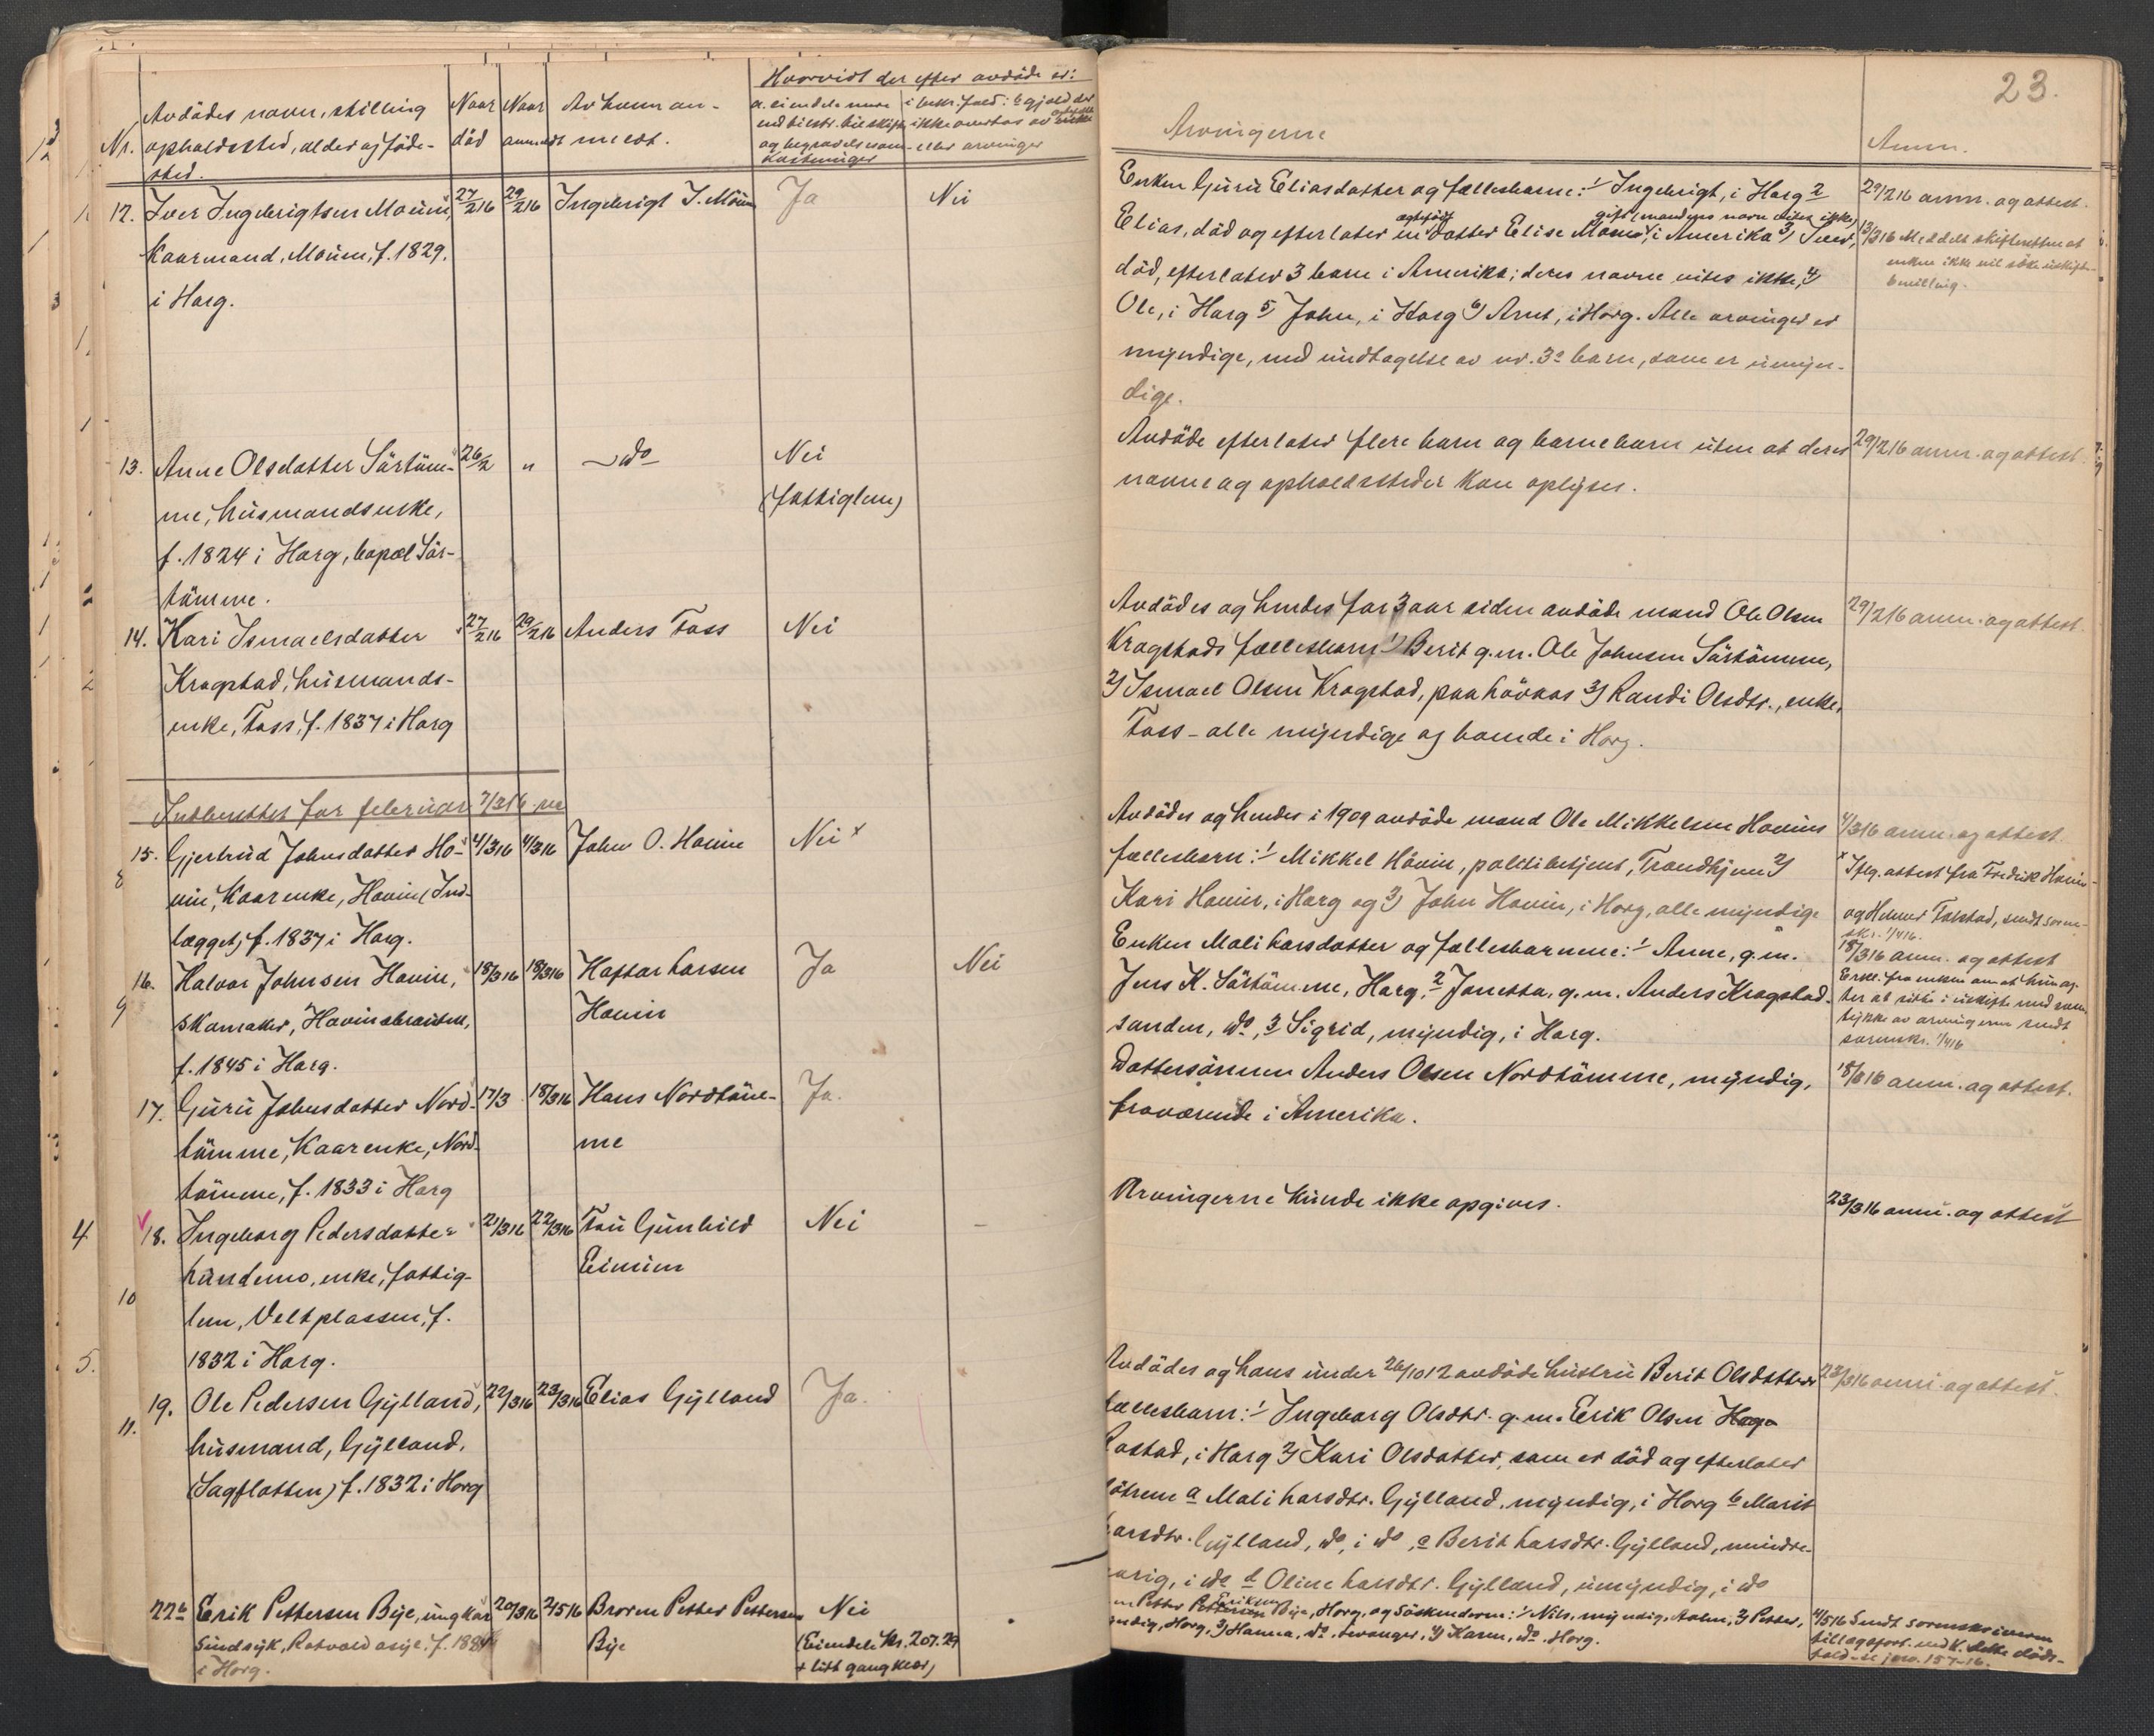 23.
Nr.
Avdødes navn, stilling
opholdssted, alder og føde-
sted.
Naar
død
Naar
anmeldt
Av hvem an-
meldt.
Hvorvidt der efter avdøde er:
a. eiendele mere
end tilstr. til skifte
og begravelsesom-
kostninger
i bekr. fald: b gjæld der
ikke overtas av enke
eller arvinger
Arvingerne
Anm.
12. Iver Ingebrigtsen Moum, 27/2 16 29/2 16 Ingebrigt I. Moum Ja Nei
Kaarmand, Moum, f. 1829.
i Horg.
Enken Guru Eliasdatter og fællesbarne: 1/ Ingebrigt, i Horg 2
Elias, død og efterlater en datter Elise Moum, gift (mandens navn vites ikke) i Amerika 3) Iver,
død, efterlater 3 barn i Amerika; deres navne vites ikke, 4)
Ole, i Horg 5) John, i Horg 6) Arnt, i Horg. Alle arvinger er
myndige, med undtagelse av nr. 3s barn, som er umyn-
dige.
29/2 16 anm. og attest.
13/3 16 Meddelt skifteretten at
enken ikke vil søke uskifte-
bevilling.
13. Anne Olsdatter Sørtøm- 26/2 " – do – Nei
me, husmandsenke, (fattiglem)
f. 1824 i Horg, bopæl Sør-
tømme.
Avdøde efterlater flere barn og barnebarn uten at deres
navne og opholdssteder kan oplyses.
29/2 16 anm. og attest.
14. Kari Ismaelsdatter 27/2 16 29/2 16 Anders Foss Nei
Krogstad, husmands-
enke, Foss, f. 1837 i Horg
Avdødes og hendes for 3 aar siden avdøde mand Ole Olsen
Krogstads fællesbarn 1) Berit g.m. Ole Johnsen Sørtømme,
2) Ismael Olsen Krogstad, paa Løvaas 3) Randi Olsdtr., enke,
Foss - alle myndige og boende i Horg.
29/2 16 anm. og attest.
Indberettet for februar 7/3 16
15. Gjertrud Johnsdatter Ho- 4/3 16 4/3 16 John O. Hovin Nei x
vin, Kaarenke, Hovin (Ind-
lægget) f. 1837 i Horg.
Avdødes og hendes i 1909 avdøde mand Ole Mikkelsen Hovins
fællesbarn: 1/ Mikkel Hovin, politibetjent, Trondhjem 2)
Kari Hovin, i Horg og 3) John Hovin, i Horg, alle myndige
4/3 16 anm. og attest.
x Iflg. attest fra Fredrik Hovin
og Helmer Folstad, sendt soren-
skr. 1/4 16.
16. Halvor Johnsen Hovin, 18/3 16 18/3 16 Haftor Larsen Ja Nei
skomaker, Hovinsbraaten, Hovin
f. 1845 i Horg.
Enken Mali Larsdatter og fællesbarnene: 1/ Anne, g.m.
Jens K. Sørtømme, Horg, 2 Jonetta, g.m. Anders Krogstad-
sanden, do, 3 Sigrid, myndig, i Horg.
18/3 16 anm. og attest
Erkl. fra enken om at hun ag-
ter at sitte i uskifte med sam-
tykke av arvingerne sendt
sorenskr. 1/4 16
17. Guru Johnsdatter Nord- 17/3 18/3 16 Hans Nordtøm- Ja.
tømme, Kaarenke, Nord- me
tømme, f. 1833 i Horg
Dattersønnen Anders Olsen Nordtømme, myndig,
fraværende i Amerika.
anm. og attest.
18. Ingeborg Pedersdatter 21/3 16 22/3 16 Fru Gunhild Nei –
Lundemo, enke, fattig- Eimun
lem, Veltplassen, f.
1832 i Horg.
Arvingerne kunde ikke opgives.
23/3 16 anm. og attest
19. Ole Pedersen Gylland, 22/3 16 23/3 16 Elias Gylland Ja.
husmand, Gylland,
(Sagflotten) f. 1832 i Horg
Avdødes og hans under 26/10 12 avdøde hustru Berit Olsdatters
fællesbarn: 1/ Ingeborg Olsdtr. g.m. Erik Olsen
Rostad, i Horg 2) Kari Olsdatter, som er død og efterlater
døtrene a Mali Larsdtr. Gylland, myndig, i Horg b Marit
Larsdtr. Gylland, do, i do, c Berit Larsdtr. Gylland, mindre-
aarig, i do d Oline Larsdtr. Gylland, umyndig, i do
23/3 16 anm. og attest.
22b Erik Pettersen Bye, ungkar 20/3 16 2/5 16 Broren Petter Pettersen Nei
sindsyk, Rotvold asyl. f. 1884 Bye (Eiendele kr. 207.29
i Horg. + litt gangklær)
Petter Eriksen Bye, Horg, og søskenderne: 1/ Nils, myndig, 2) Petter,
myndig, Horg, 3) Hanna, do, Levanger, 4) Karen, do, Horg.
4/5 16 Sendt sorenskriveren
tillægsfort. med k. dette døds-
fald - se jour. 157-16.